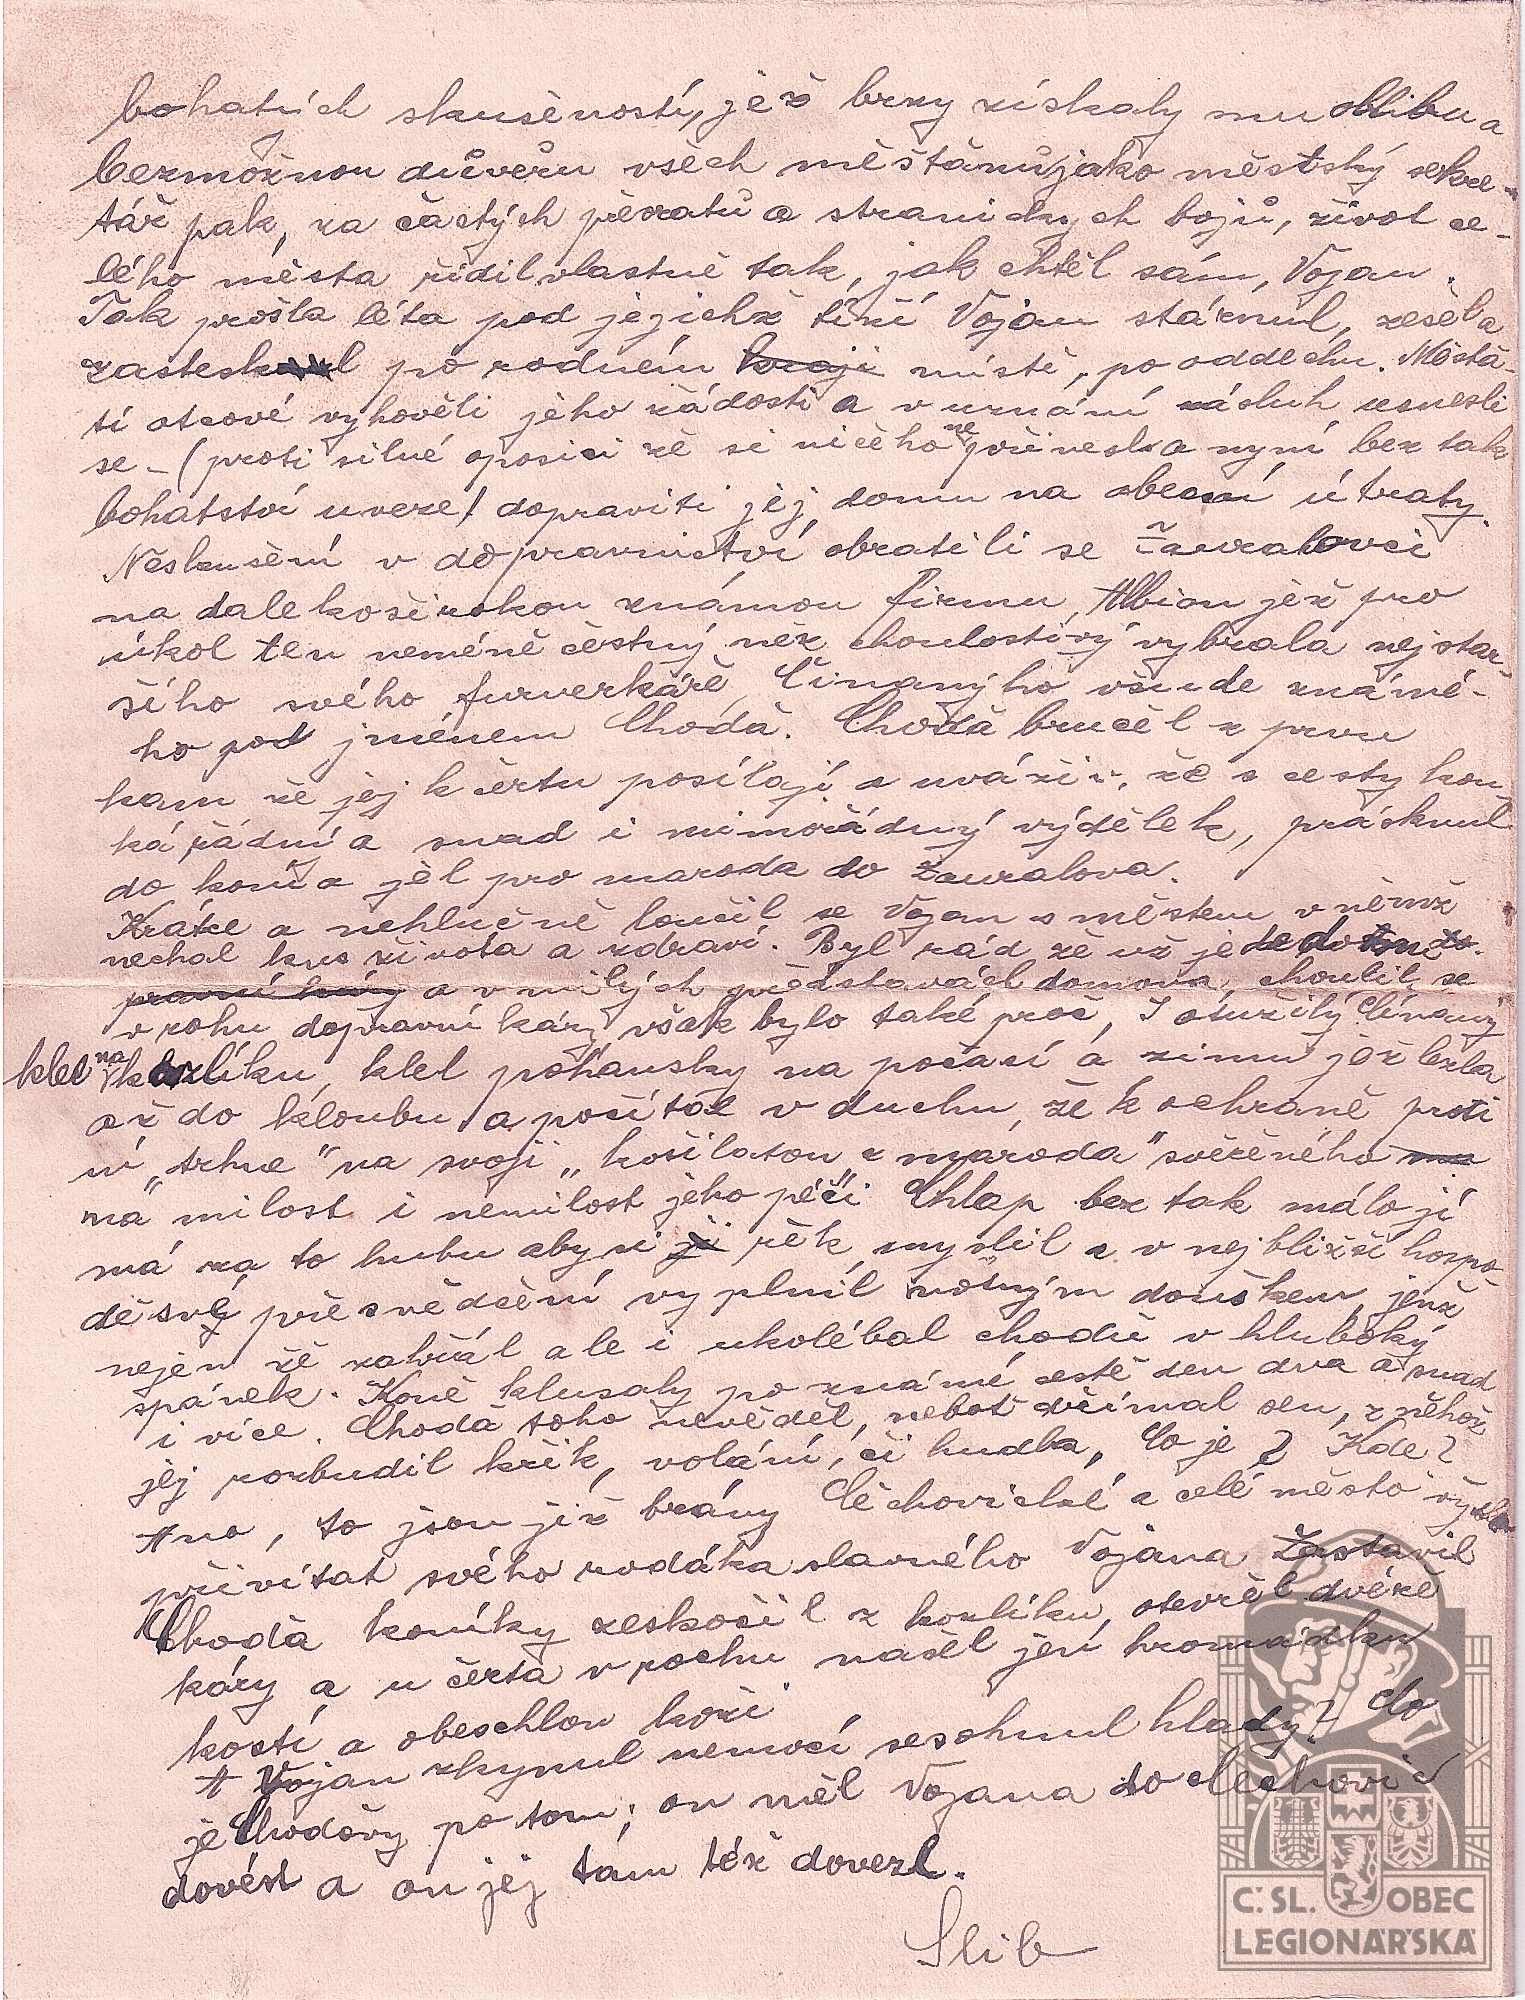 bohatých skušeností, jěž brzy získaly mu oblibu a
bezmožnou důvěru všech měštěnů jako městský sekre-
tář pak, za častých převratů a stranických bojů, život ce-
lého města řídil vlastně tak, jak chtěl sám, Vojan.
Tak prošla léta pod jejichž tíží Vojan stárnul, zešel a
zasteskl po rodném kraji místě, po oddechu. Městš-
tí otcové vyhověli jeho žádosti a v uznání zásluh usnesli
se – (proti silné oposici že si ničeho nepřinesl a nyní bez tak
bohatství uveze) dopraviti jej domu na obecní útraty.
Neskušení v dopravnictví obratili se Žauralovci
na dalekoširokou známou firmu, Albion jěž pro
úkol ten neméně čestný něž choulostivý vybrala nejstar-
šího svého furverkáře, Činanýho všude známé-
ho pod jménem Choďa. Choďa bručel z prvu
kam že jej k čertu posílají a uváživ, že s cesty kou-
ká řádní a snad i mimořádný výdělek, prásknul
do koní a jel pro maroda do Žauralova.
Krátce a nehlučně loučil se Vojan s městem v němž
nechal kus života a zdraví. Byl rád že už jede domu do-
pravní káry a v milých představách domova, choulil se
v rohu dopravní káry však bylo také proč, I otužilý Čínaný
klel na kozlíku, klel pohansky na počasí a zimu jež lezla
až do kloubu a počítal v duchu, že k ochraně proti
ní „trhne" na svoji „košilatou z maroda" svěřeného mu
na milost i nemilost jeho péči Chlap bez tak málo jí
má za to hubu aby si ji řek, myslil a v nejbližší hospo-
dě svý přesvědčení vyplnil notným douškem, jenž
nejen že zahřál ale i ukolébal chodu v hluboký
spánek. Koně klusaly po známé cestě den dva a snad
i více. Choďa toho nevěděl, neboť dřímal sen, z něhož
jěj rozbudil křik, volání, či hudba, Co je? Kde?
Ano, to jsou již brány Čechovické a celé město vyšlo
přivítat svého rodáka slavného Vojana Zastavil
Choďa koníky seskočil z kozlíku, otevřel dvéře
káry a u čerta v rochu našel jen hromádku
kostí a obeschlou kůži
A Vojan zhynul nemocí sesohnul hlady? Co
je Choďovy po tom; on měl Vojana do Čechovic
dovést a on jej tám též dovezl.
Slib
C. SL. OBEC
LEGIONÁŘSKÁ